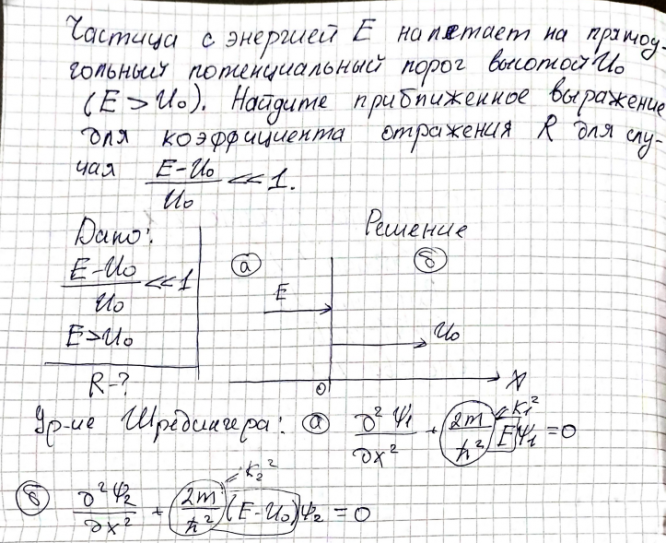 Частица с энергией E налетает на прямоу-
гольный потенциальный порог высотой U₀
(E > U₀). Найдите приближенное выражение
для коэффициента отражения R для слу-
чая (E-U₀)/U₀ << 1.
Дано: Решение
(E-U₀)/U₀ << 1
E>U₀
R-?
а б
E
U₀
0 X
Ур-ие Шредингера: а ∂²Ψ₁/∂x² + 2m/ħ² E Ψ₁ = 0 K₁²
б ∂²Ψ₂/∂x² + 2m/ħ² (E-U₀) Ψ₂ = 0 K₂²